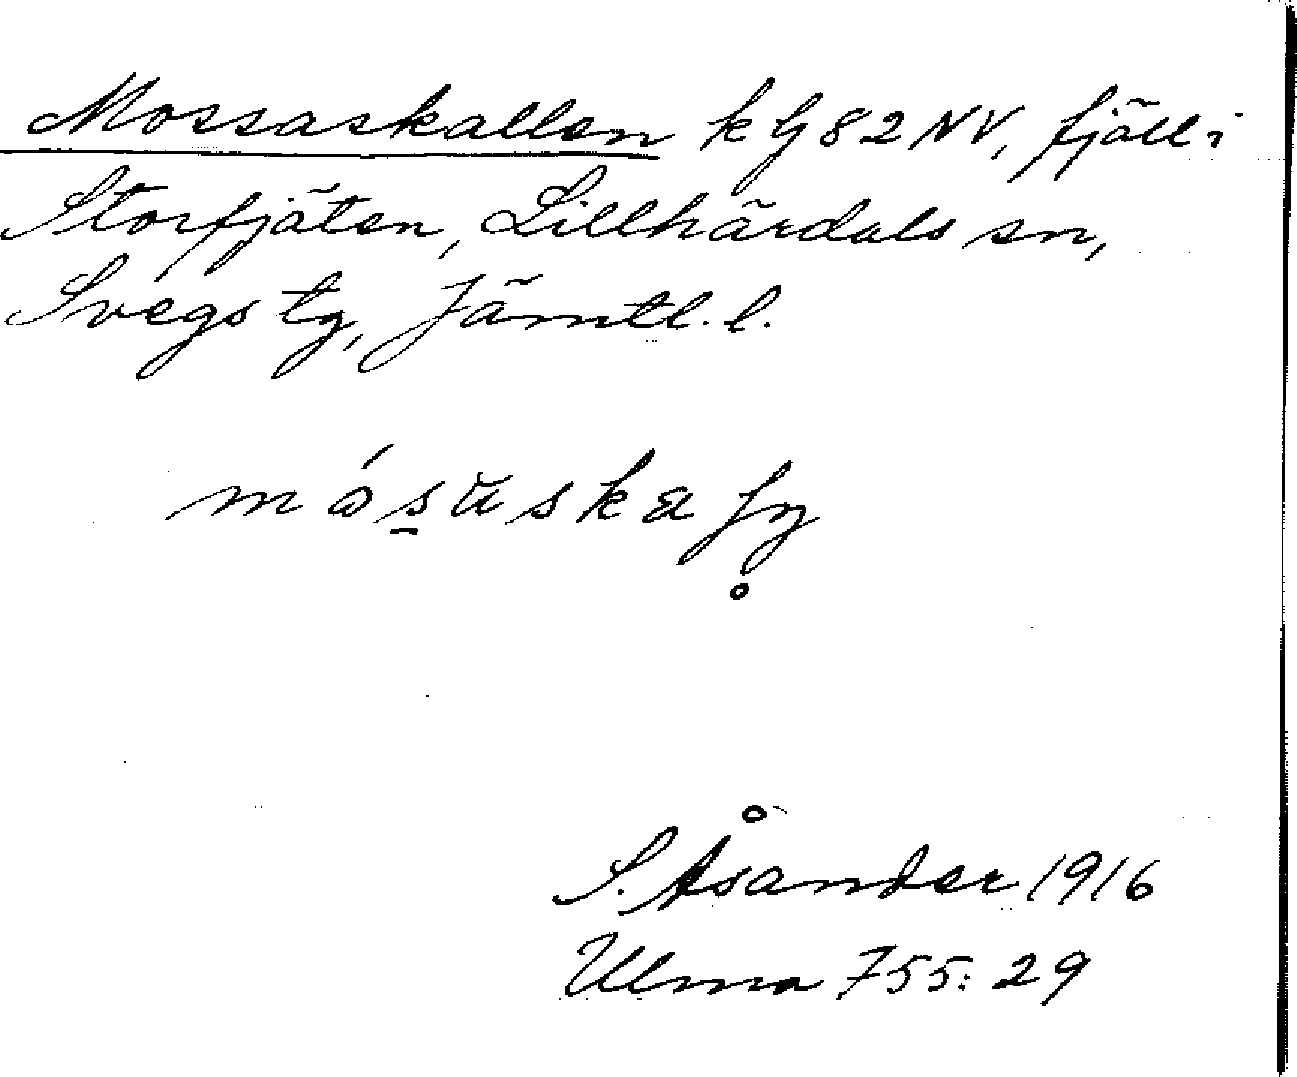 Mossaskallen k G 82 NV, fjäll i
Storfjäten, Lillhärdals sn,
Svegs tg, Jämtl. l.
S. Åsander 1916
Ulma 755:29